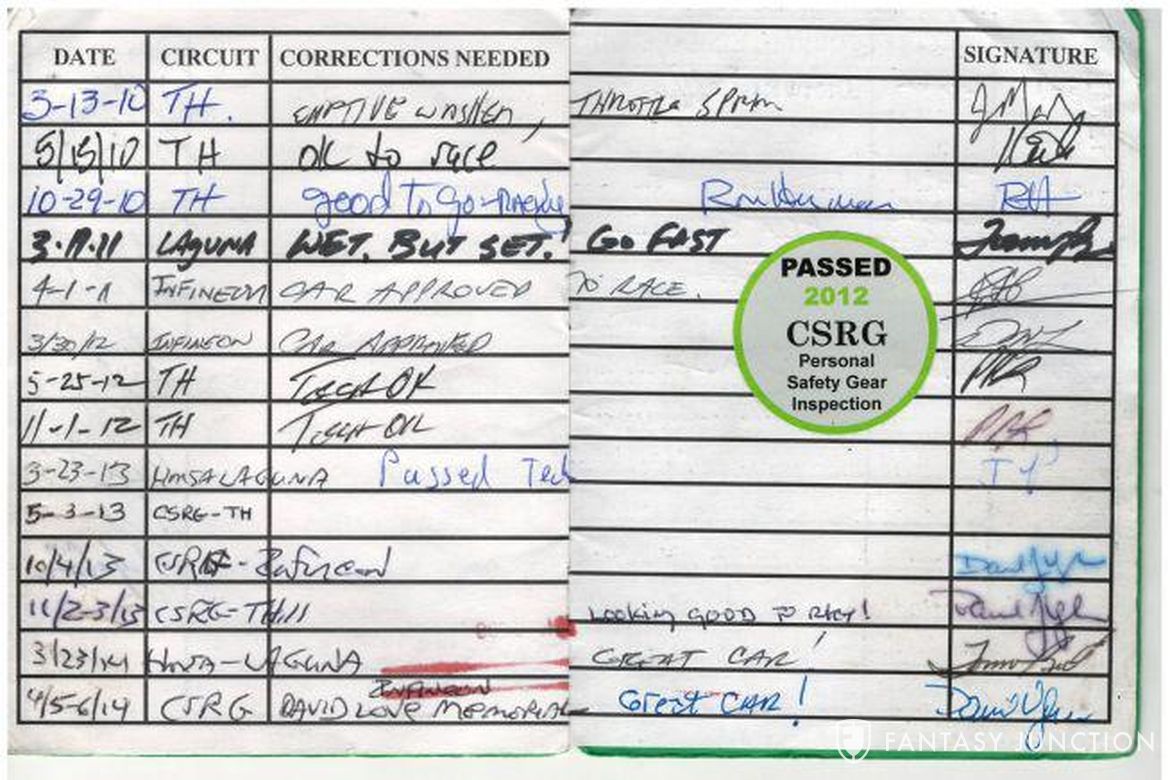 DATE CIRCUIT CORRECTIONS NEEDED SIGNATURE
3-13-10 TH. WASHER, THROTTLE
5/15/10 TH OK to race
10-29-10 TH good To go - Ron
LAGUNA WET. BUT SET! GO FAST
4-1-11 INFINEON CAR APPROVED TO RACE.
3/30/12 INFINEON CAR APPROVED
5-25-12 TH TECH OK
11-1-12 TH TECH OK
3-23-13 HMSA LAGUNA Passed Tech
5-3-13 CSRG-TH
10/4/13 CSRG - Infineon
11/2-3/13 CSRG-THill LOOKING GOOD TO
3/23/14 HMSA-LAGUNA GREAT CAR!
INFINEON
4/5-6/14 CSRG DAVID LOVE MEMORIAL Great CAR!
PASSED
2012
CSRG
Personal
Safety Gear
Inspection
FANTASY JUNCTION